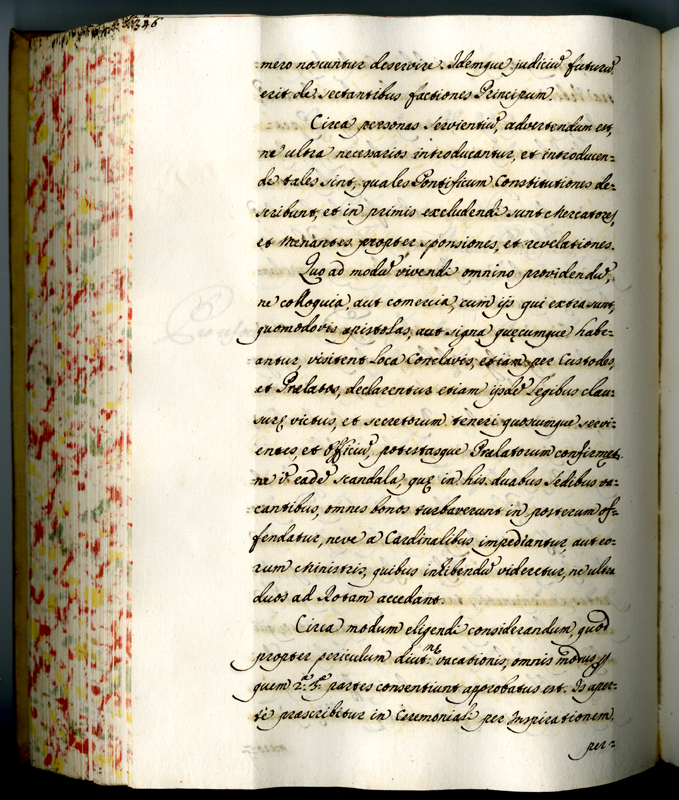 346
mero noscuntur deservire. Idemque judiciũ futurũ
erit de sectantibus factiones Principum.
Circa personas servientiũ, advertendum est,
ne ultra necessarios introducantur, et introducen=
di tales sint, quales Pontificum Constitutiones de=
scribunt, et in primis excludendi sunt Mercatores,
et Menantes propter sponsiones, et revelationes.
Quo ad modũ vivendi omnino providendũ,
ne colloquia, aut comercia, cum ijs qui extra sunt,
quomodovis epistolas, aut signa quęcumque habe=
antur, visitent loca Conclavis, etiam per Custodes,
et Prælatos, declarentur etiam ijsdẽ legibus clau=
surę victus, et secretorum teneri quoscumque servi=
entes, et Officiũ, potestasque Prælatorum confirmet.
ne ĩ eadẽ scandala, quę in his duabus Sedibus va=
cantibus, omnes bonos turbaverunt in posterum of=
fendatur, neve a Cardinalibus impediantur, aut eo=
rum Ministris, quibus inhibendũ videretur, ne ultra
duos ad Rotam accedant.
Circa modum eligendi considerandum, quod
propter periculum diut:nę vacationis, omnis modus
quem 2.ę 3.ę partes consentiunt approbatus est. Is aper=
te præscribitur in Ceremoniali per Inspirationem,
per=